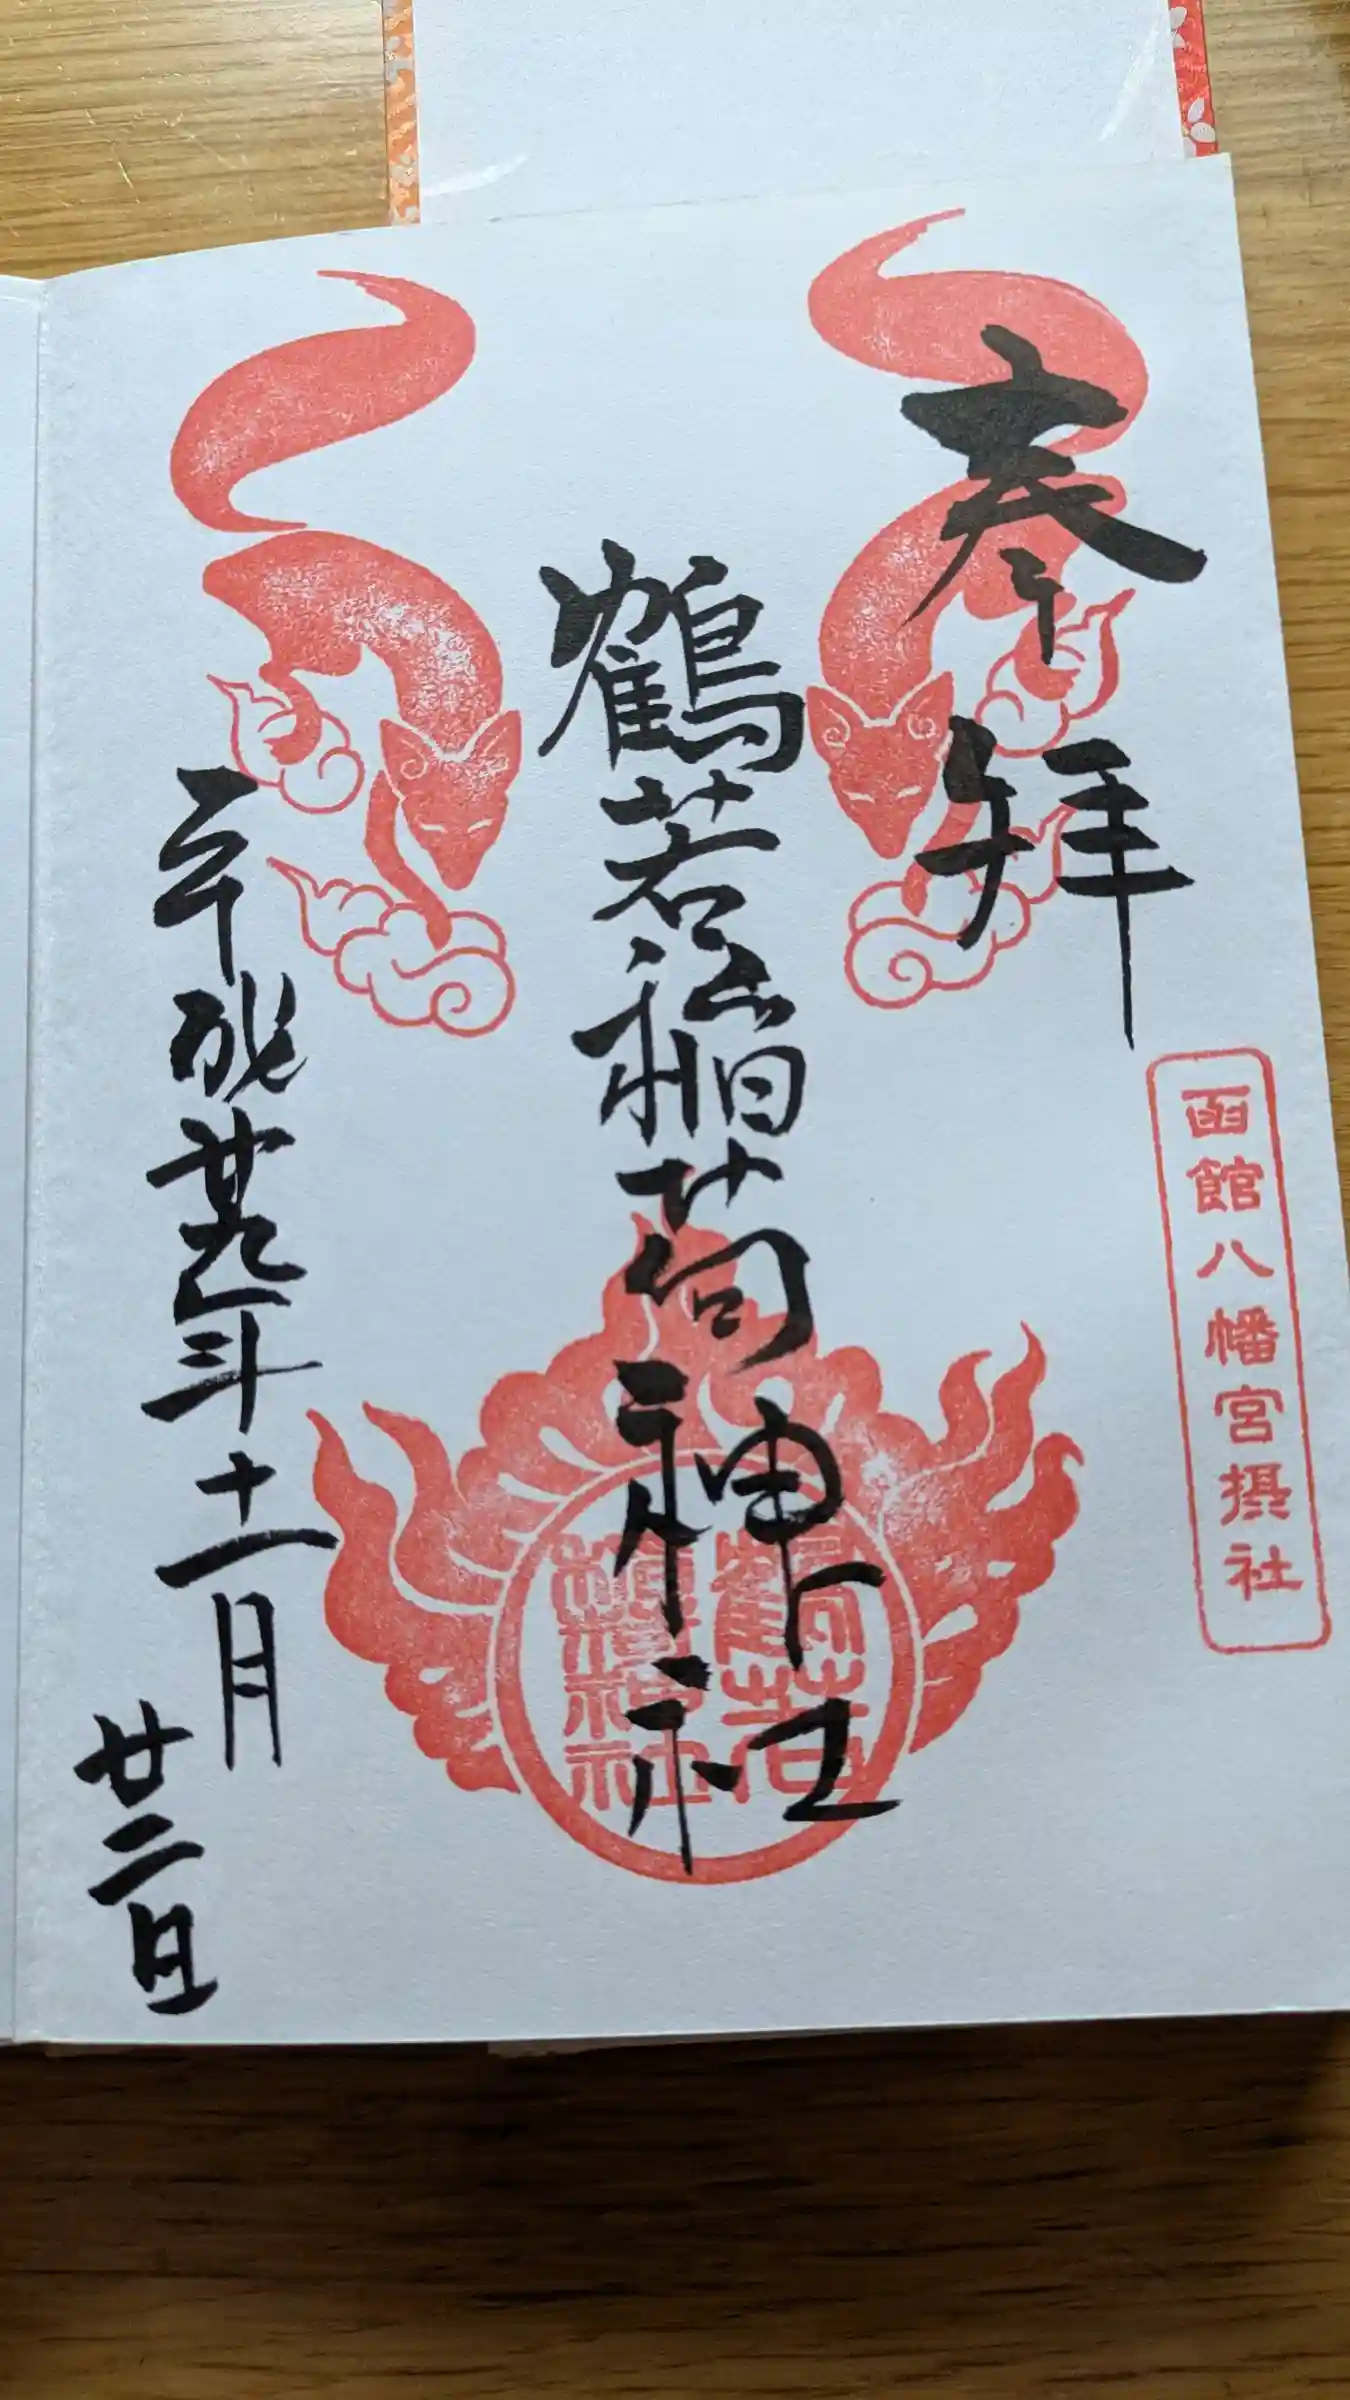 奉拝
函館八幡宮摂社
鶴若稲荷神社
鶴若
稲荷神社
平成廿九年十一月
廿二日